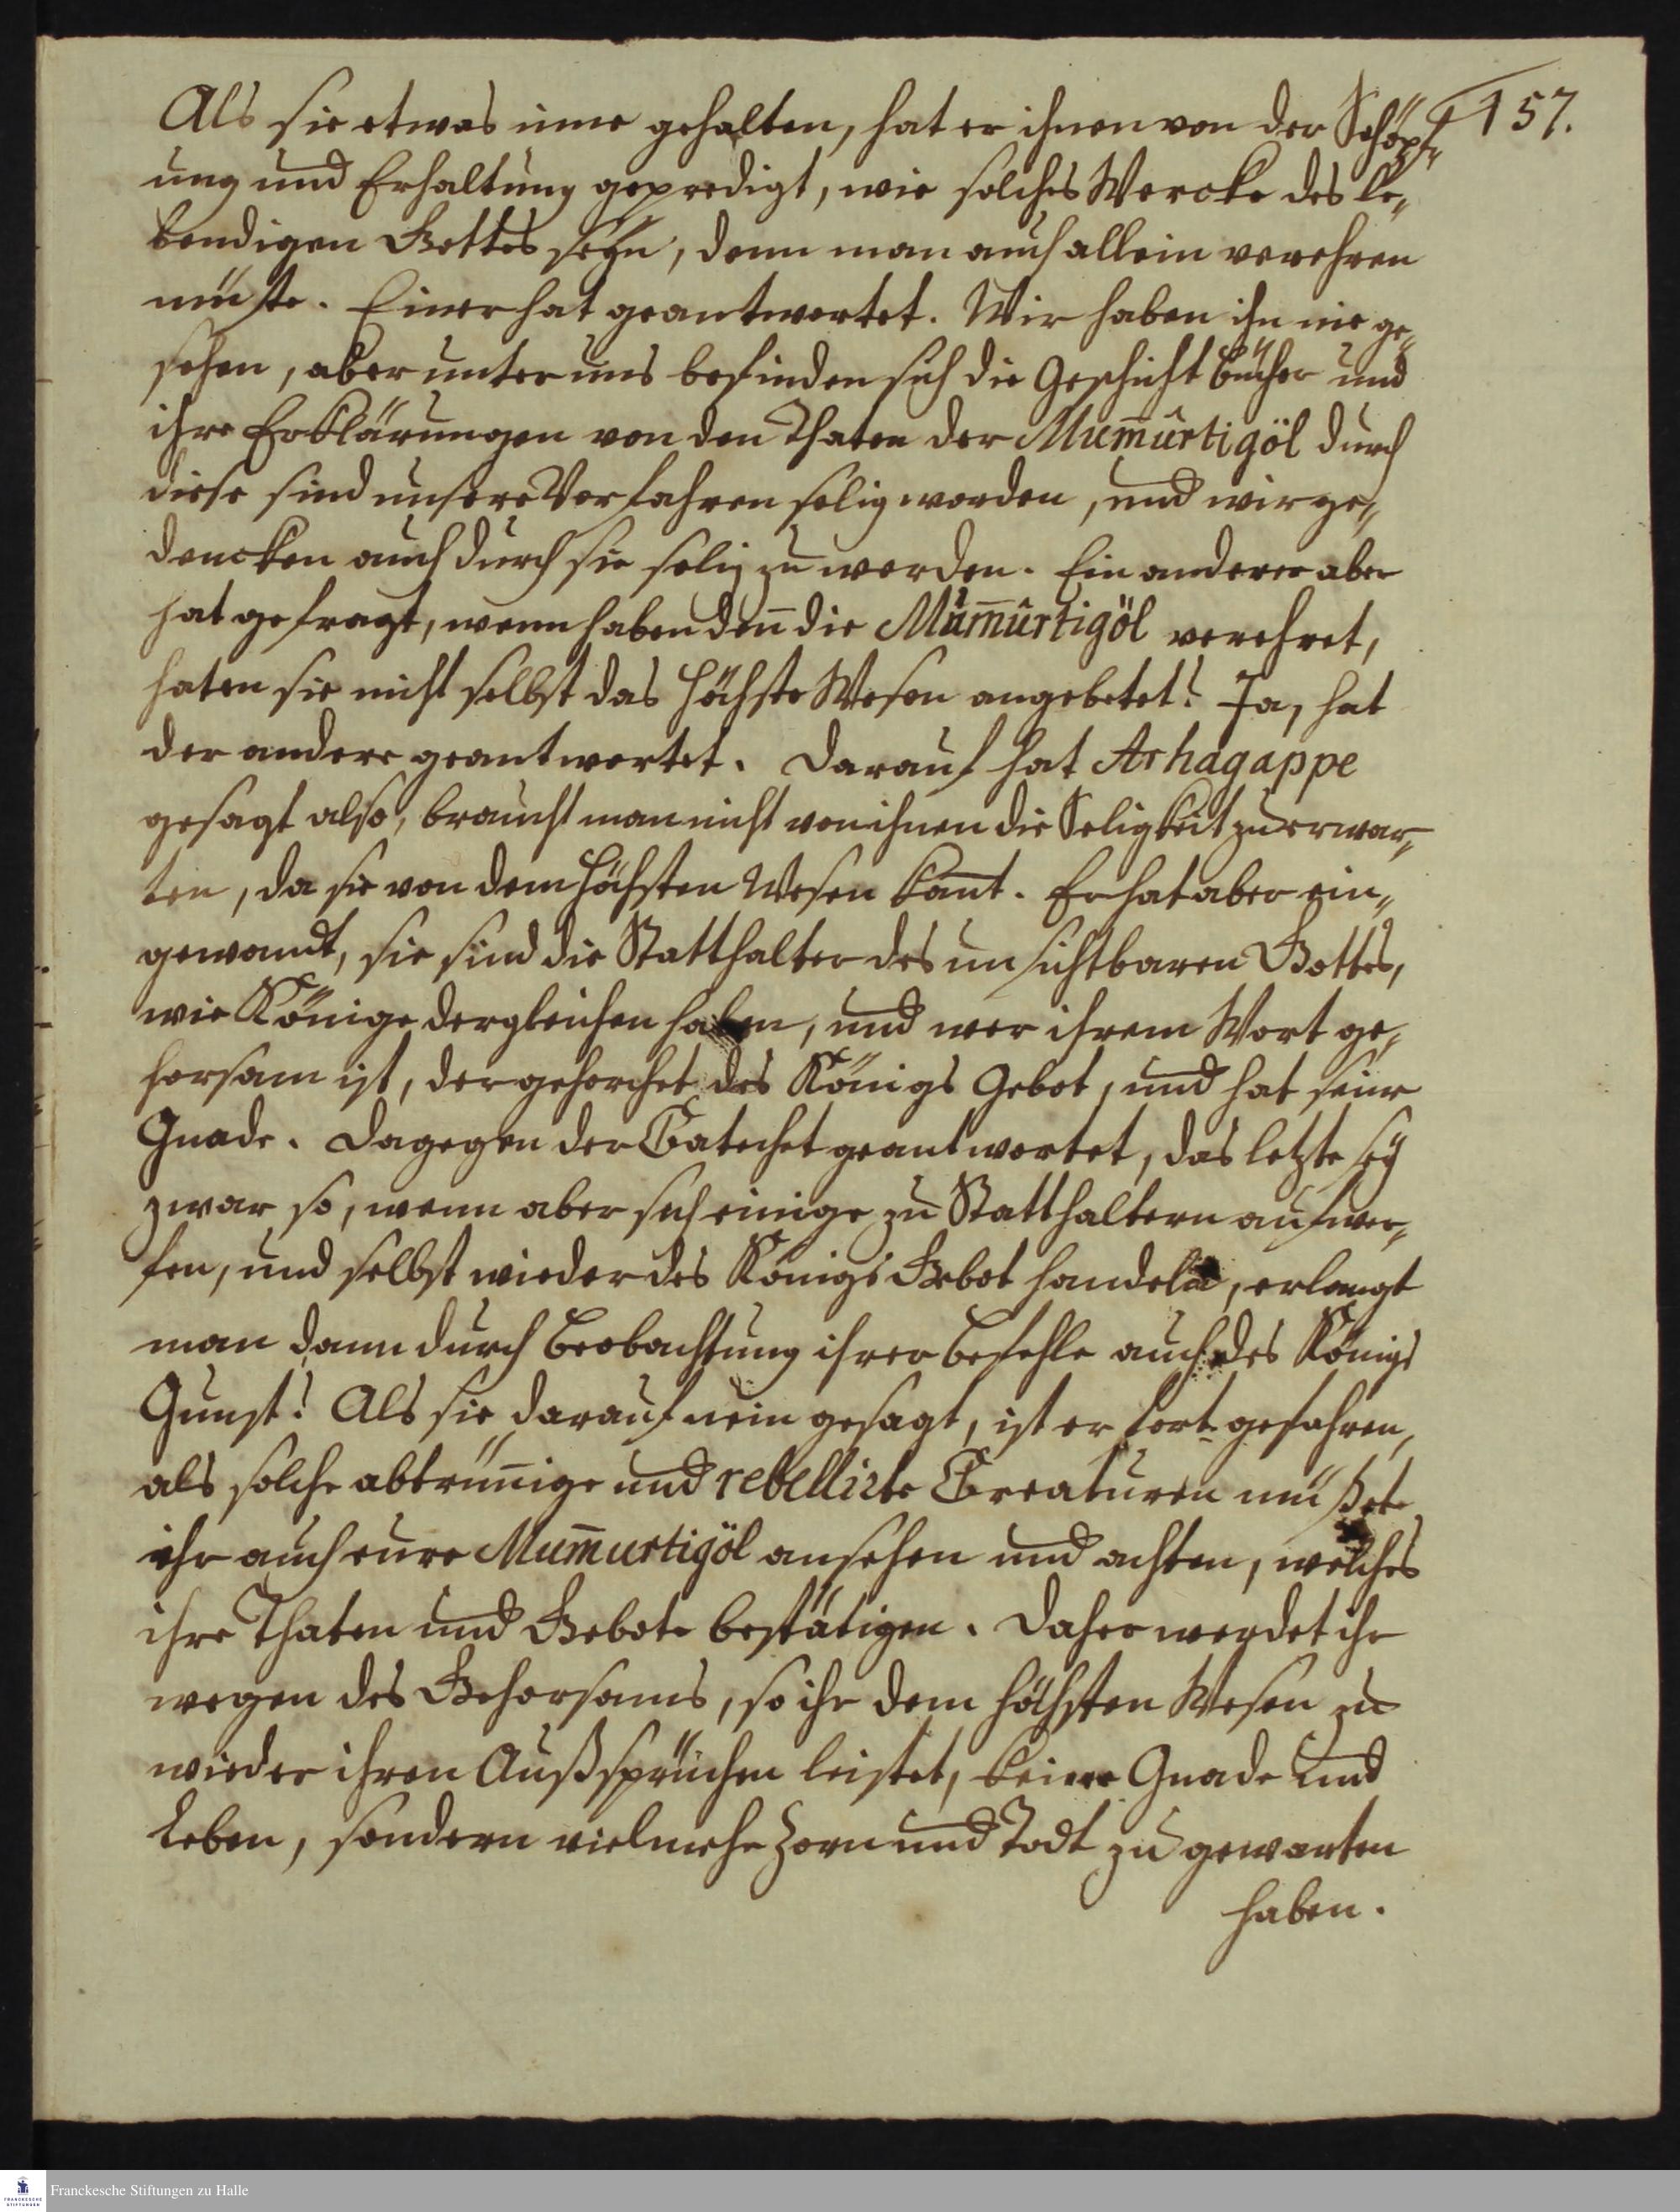 157.
Als sie etwas inne gehalten, hat er ihnen von der Schöpf„
ung und Erhaltung geprediget, wie solches Wercke des le„
bendigen Gottes seÿn, denn man auch allein verehren
müste. Einer hat geantwortet. Wir haben ihn nie ge„
sehen, aber unter uns befinden sich die Geschicht bücher und
ihre Erklärungen von den Thaten der Mum̅ûrtigöl durch
diese sind unsere Vorfahren selig worden, und wir ge„
dencken auch durch sie selig zu werden. Ein anderer aber
hat gefragt, wenn haben den̅ die Mum̅ûrtigöl verehret,
haten sie nicht selbst das Höchste Wesen angebetet? Ja, hat
der andere geantwortet. Darauf hat Arhagappe
gesagt also, braucht man nicht von ihnen die Seligkeit zu erwar„
ten, da sie von dem Höchsten Wesen kam̅t. Er hat aber ein„
gewandt, sie sind die Statthalter des unsichtbaren Gottes,
wie Könige dergleichen haben, und wer ihrem Wort ge„
horsam ist, der gehorchet des Königs Gebot, und hat seine
Gnade. Dagegen der Catechet geantwortet, das letzte seÿ
zwar so, wenn aber sich einige zu Statthaltern aufwer„
fen, und selbst wieder des Königs Gebot handeln, erlangt
man dann durch Beobachtung ihrer Befehle auch des Königs
Gunst? Als sie darauf nein gesagt, ist er fort gefahren,
als solche abtrün̅ige und rebellirte Creaturen müßet
ihr auch eure Mum̅urtigöl ansehen und achten, welches
ihre Thaten und Gebote bestätigen. Daher werdet ihr
wegen des Gehorsams, so ihr dem höchsten Wesen zu
wieder ihren Außsprüchen leistet, keine Gnade und
Leben, sondern vielmehr Zorn und Todt zu gewarten
haben.
Franckesche Stiftungen zu Halle